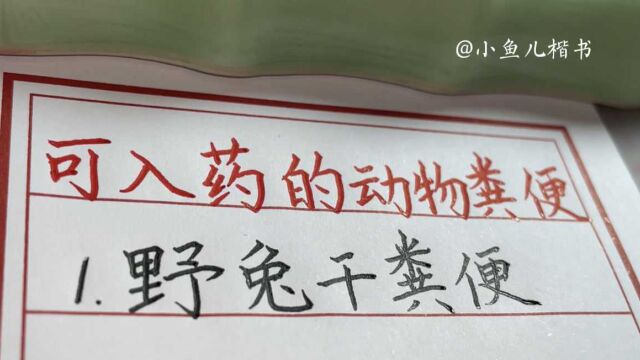 @小鱼儿楷书
可入药的动物粪便
1.野兔干粪便